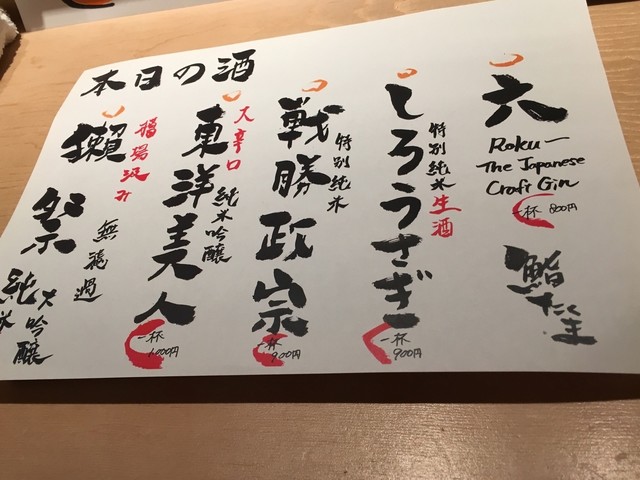 本日の酒
六
Roku
The Japanese
Craft Gin
一杯 800円
鮨たくま
しろうさぎ
特別純米生酒
一杯
900円
戦勝政宗
特別純米
一杯
900円
東洋美人
大辛口
純米吟醸
一杯
1,000円
獺祭
槽場汲み
無濾過
純米大吟醸